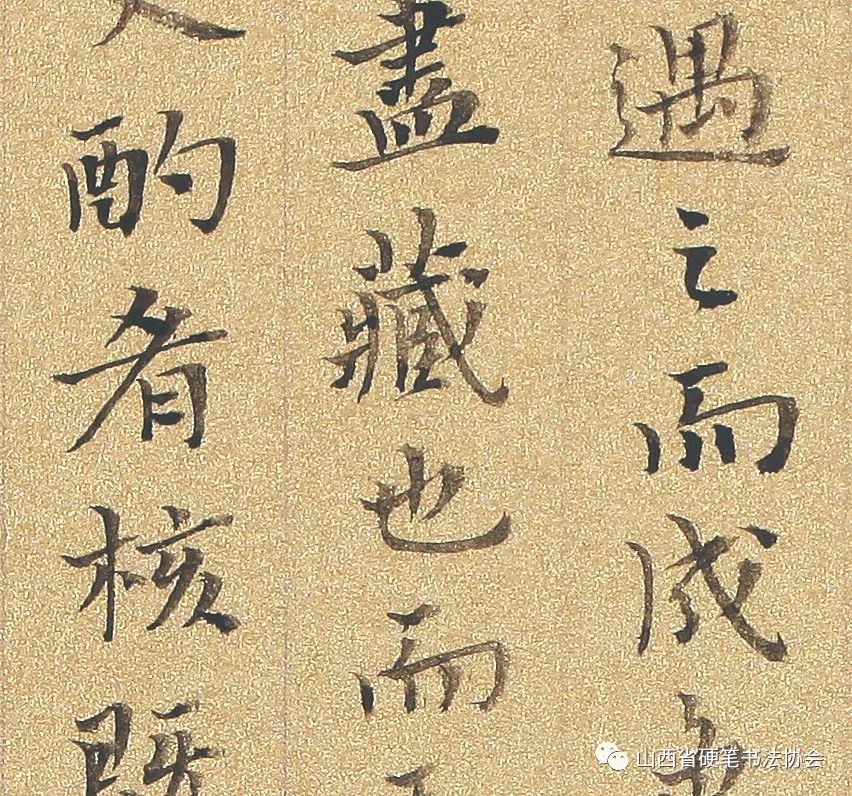 遇之而成
盡藏也而
酌肴核既
山西省硬笔书法协会